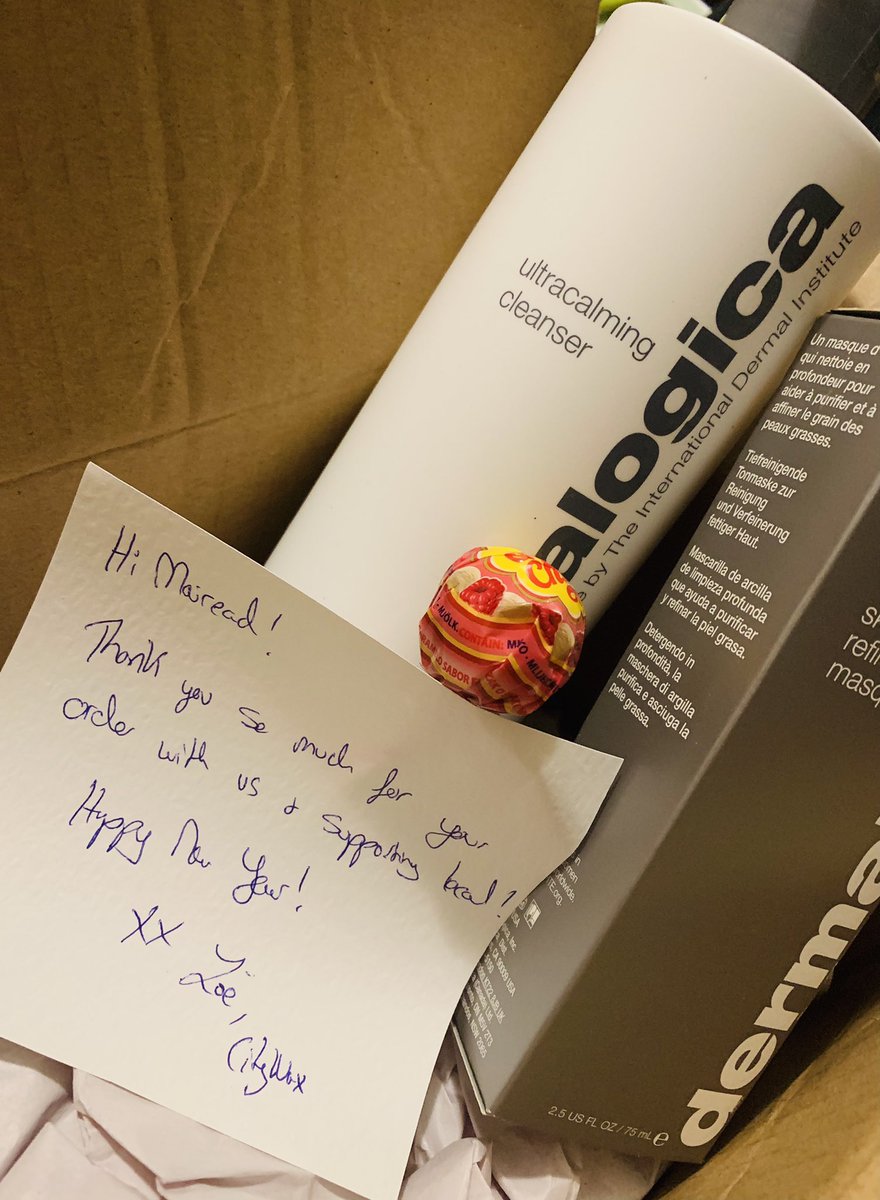 Hi Mairead!
Thank you so much for your
order with us & supporting local!
Happy New Year!
xx
Zoë,
CityWax
ultracalming
cleanser
alogica
by The International Dermal Institute
CONTAIN:
SABOR
Un masque d
qui nettoie en
profondeur pour
aider à purifier et à
affiner le grain des
peaux grasses.
Tiefreinigende
Tonmaske zur
Reinigung
und Verfeinerung
fettiger Haut.
Mascarilla de arcilla
de limpieza profunda
que ayuda a purificar
y refinar la piel grasa.
Detergendo in
profondità, la
maschera di argilla
purifica e asciuga la
pelle grassa.
refin
masq
derma
2.5 US FL OZ / 75 mL e